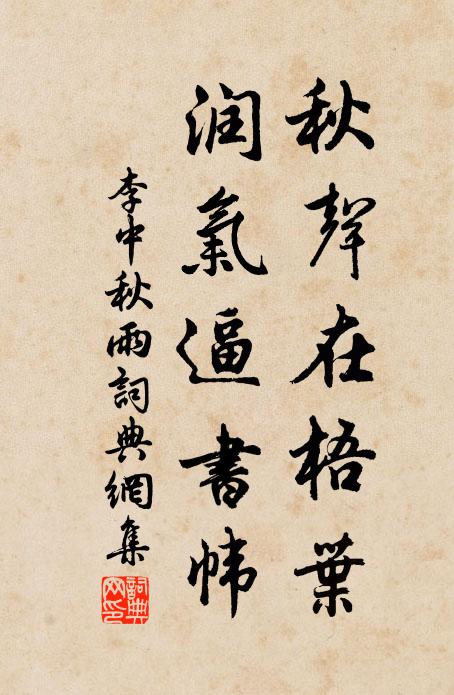 秋聲在梧葉
润氣逼書幃
李中秋雨詞典網集
詞典網印